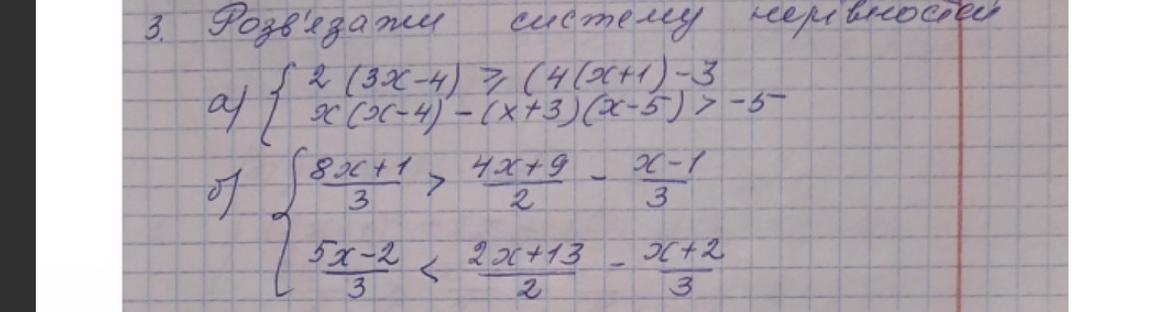 3. Розв'язати систему нерівностей
а) { 2 (3x-4) ⩾ (4(x+1)-3
x(x-4) - (x+3)(x-5) > -5
б) { (8x+1)/3 > (4x+9)/2 - (x-1)/3
(5x-2)/3 < (2x+13)/2 - (x+2)/3